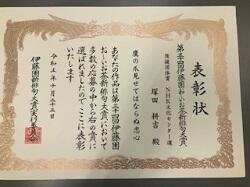 表彰状
第三十四回伊藤園お〜いお茶新俳句大賞
後援団体賞 NHK文化センター賞
塚田 耕吉 殿
鷹の爪見せてはならぬ忠心
あなたの作品は第三十四回伊藤園
お〜いお茶新俳句大賞において
多数の応募の中から右の賞に
選ばれましたのでここに表彰
いたします
令和五年十月
伊藤園新俳句大賞実行委員会